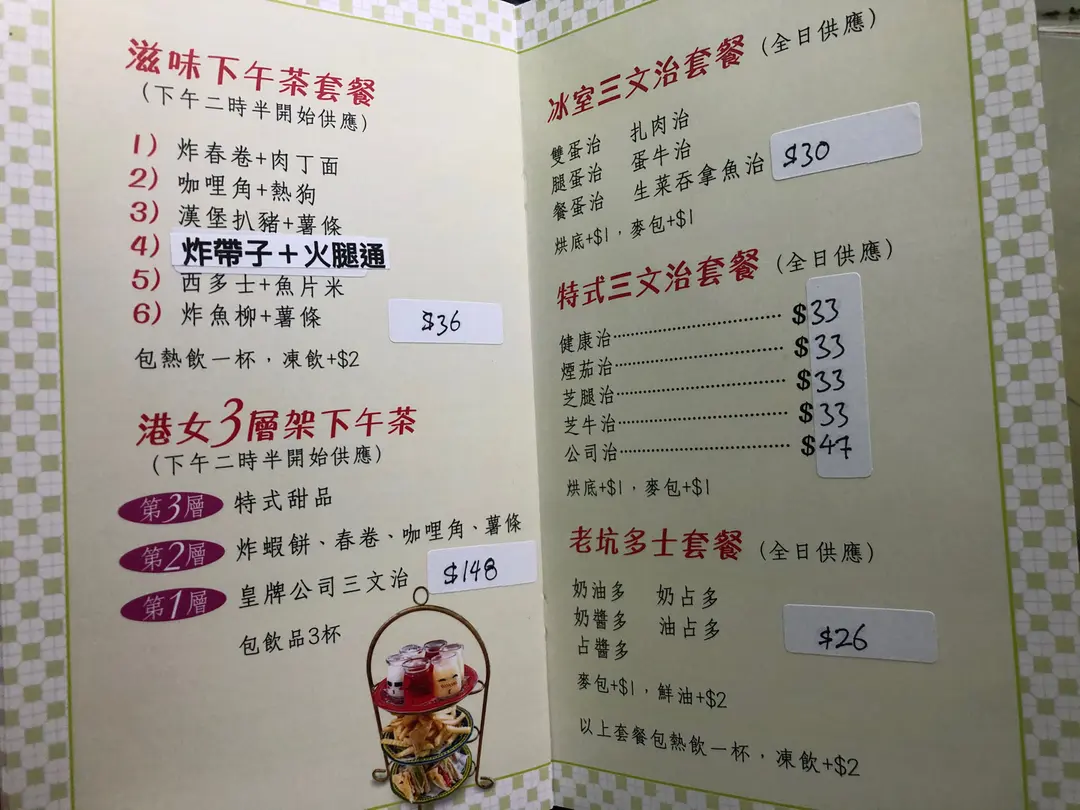 滋味下午茶套餐
(下午二時半開始供應)
1) 炸春卷+肉丁面
2) 咖哩角+熱狗
3) 漢堡扒豬+薯條
4) 炸帶子+火腿通
5) 西多士+魚片米
6) 炸魚柳+薯條
$36
包熱飲一杯，凍飲+$2
港女3層架下午茶
(下午二時半開始供應)
第3層 特式甜品
第2層 炸蝦餅、春卷、咖哩角、薯條
第1層 皇牌公司三文治 $148
包飲品3杯
冰室三文治套餐 (全日供應)
雙蛋治 扎肉治
腿蛋治 蛋牛治
餐蛋治 生菜吞拿魚治 $30
烘底+$1，麥包+$1
特式三文治套餐 (全日供應)
健康治 $33
煙茄治 $33
芝腿治 $33
芝牛治 $33
公司治 $47
烘底+$1，麥包+$1
老坑多士套餐 (全日供應)
奶油多 奶占多
奶醬多 油占多
占醬多
$26
麥包+$1，鮮油+$2
以上套餐包熱飲一杯，凍飲+$2